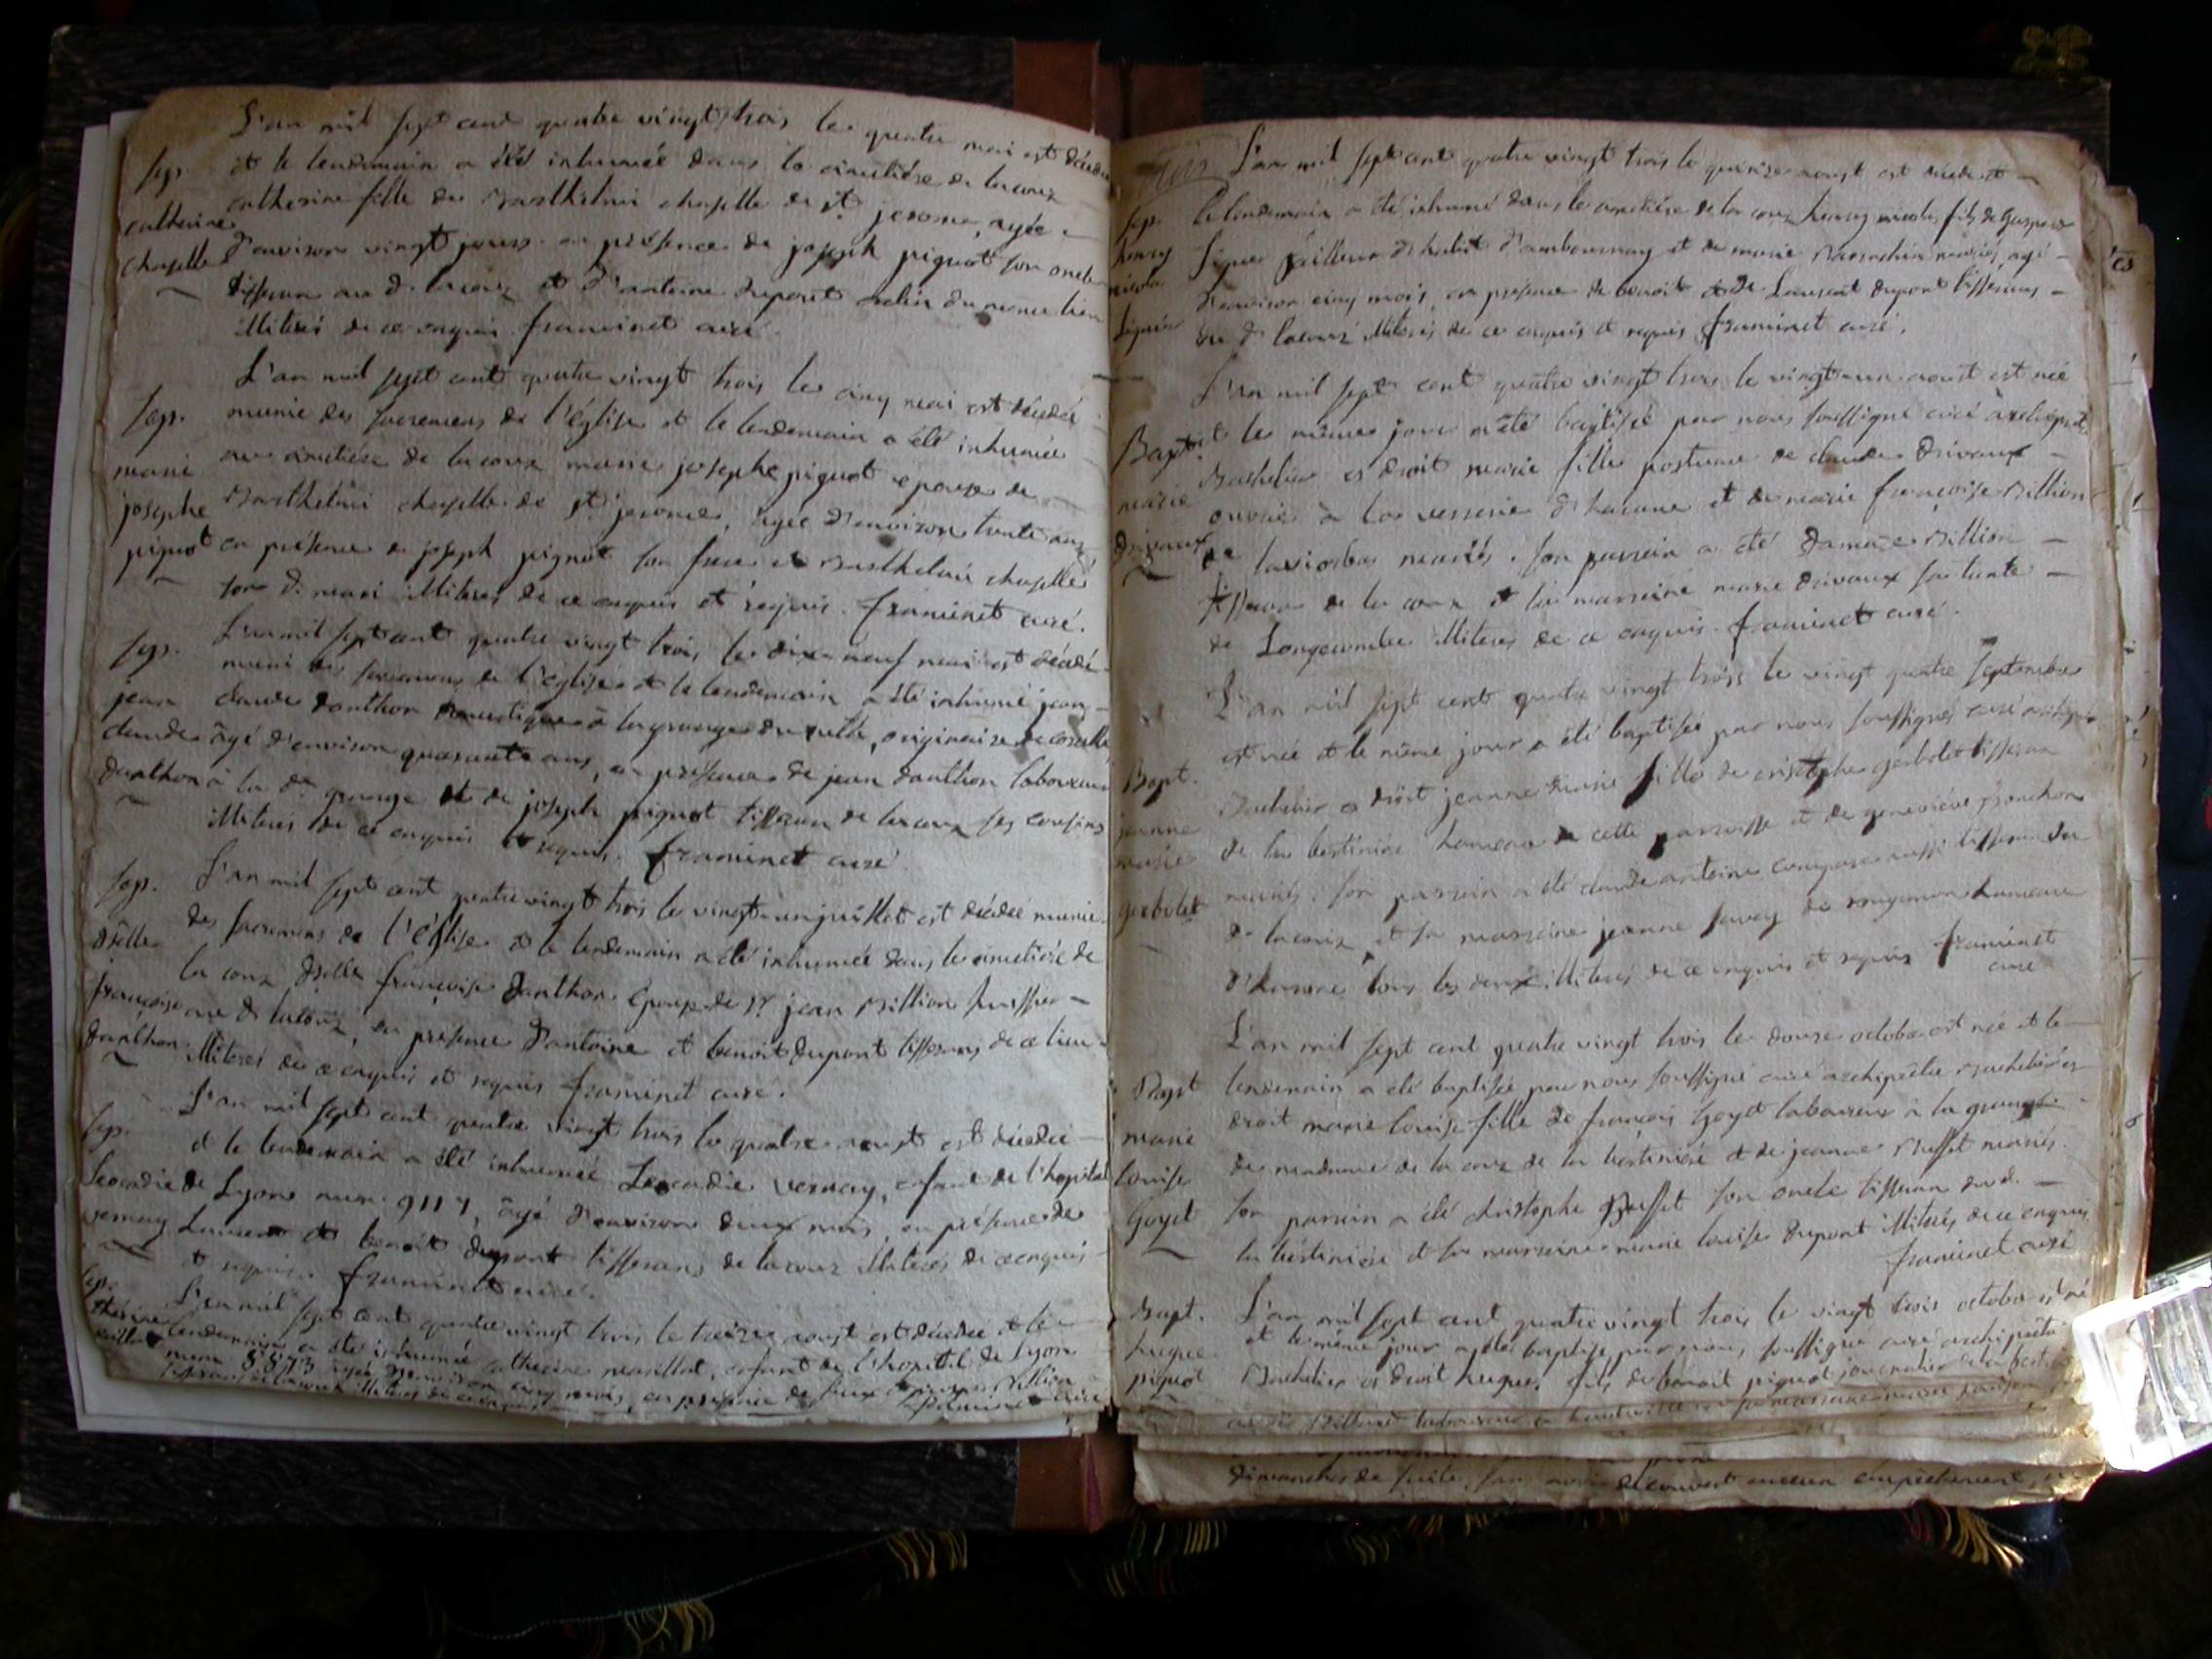 L'an mil sept cent quatre vingt trois le quatre mai est décédée
Sep. et le lendemain a été inhumée dans le cimetière de lacoux
catherine fille de Barthelmi chapelle de st jerome, agée
catherine
chapelle d'environ vingt jours en présence de joseph piquot son oncle
tisseran au d. lacoux et d'antoine dupont du même lieu
illiterés de ce enquis. framinet curé.
L'an mil sept cent quatre vingt trois le cinq mai est décédée
Sep. munie des sacremens de l'église et le lendemain a été inhumée
marie au cimetière de lacoux marie josephe piquot epouse de
josephe Barthelmi chapelle de st jerome, agée d'environ trente ans
piquot en présence de joseph piquot son frere et Barthelmi chapelle
son d. mari illiterés de ce enquis et requis. framinet curé.
Sep. L'an mil sept cent quatre vingt trois le dix neuf mai est décédé
muni des sacremens de l'église et le lendemain a été inhumé jean
jean claude danthon domestique à la grange du, originaire de
claude âgé d'environ quarante ans, en présence de jean danthon laboureur
danthon à la de grange et de joseph piquot tisseran de lacoux ses cousins
illiterés de ce enquis et requis. framinet curé
Sep. L'an mil sept cent quatre vingt trois le vingt-un juillet est décédée munie
des sacremens de l'église et le lendemain a été inhumée dans le cimetière de
dselle la coux dselle françoise danthon épouse de Sr jean Billion huissier
françoise au d. lacoux, en présence d'antoine et benoit dupont tisserans de ce lieu
danthon illiterés de ce enquis et requis framinet curé.
L'an mil sept cent quatre vingt trois le quatre aoust est décédée
Sep. et le lendemain a été inhumée Leocadie vernay, enfant de l'hopital
Leocadie de Lyon num. 9117, âgé d'environ deux mois, en présence de
vernay Laurent et benoit dupont tisserans de lacoux illiterés de ce enquis
et requis. framinet curé.
Sep. L'an mil sept cent quatre vingt trois le treize aoust est décédée et le
lendemain a été inhumée catherine, enfant de l'hopital de Lyon
num 8873 agée d'environ cinq mois, en présence de Billion
tisserans de lacoux illiterés de ce enquis framinet curé
L'an mil sept cent quatre vingt trois le quinze aoust est décédé et
Sep. le lendemain a été inhumé dans le cimetière de la coux henry nicolas fils de Gaspard
henry d'habit d'ambournay et de marie mariés, agé
nicolas d'environ cinq mois, en présence de benoit et de Laurent dupont tisserans
du d. lacoux illiterés de ce enquis et requis framinet curé.
L'an mil sept cent quatre vingt trois le vingt-un aoust est née
Bapt. et le même jour a été baptisée par nous soussigné curé archiprêtre
marie Bachelier es droit marie fille postume de claude drivaux
ouvrier à la verrerie d'hauterive et de marie françoise Billion
drivaux de mariés. son parrein a été Billion
tisseran de la coux et la marreine marie drivaux sa tante
de Longecombe illiterés de ce enquis. framinet curé.
L'an mil sept cent quatre vingt trois le vingt quatre septembre
est née et le même jour a été baptisée par nous soussigné curé archiprêtre
Bapt. Bachelier es droit jeanne marie fille de cristophe gerbolet tisseran
jeanne de la bertiniere hameau de cette parroisse et de genevieve
marie mariés. son parrein a été claude antoine aussi tisseran du
gerbolet d. lacoux, et sa marreine jeanne hameau
tous les deux illiterés de ce enquis et requis framinet
curé
L'an mil sept cent quatre vingt trois le douze octobre est née et le
Bapt lendemain a été baptisée par nous soussigné curé archiprêtre Bachelier es
marie droit marie louise fille de francois Goyet laboureur à la grange
de madame de la coux de la bertiniere et de jeanne Buffet mariés.
louise son parrein a été christophe Buffet son oncle tisseran au d.
Goyet la bertiniere et sa marreine marie louise dupont illiterés de ce enquis
framinet curé
Bapt. L'an mil sept cent quatre vingt trois le vingt trois octobre est né
hugue et le même jour a été baptisé par nous soussigné curé archiprêtre
piquot Bachelier es droit hugue, fils de benoit piquot journalier
laboureur sa marreine marie
dimanches de suite, sans avoir découvert aucun empêchement